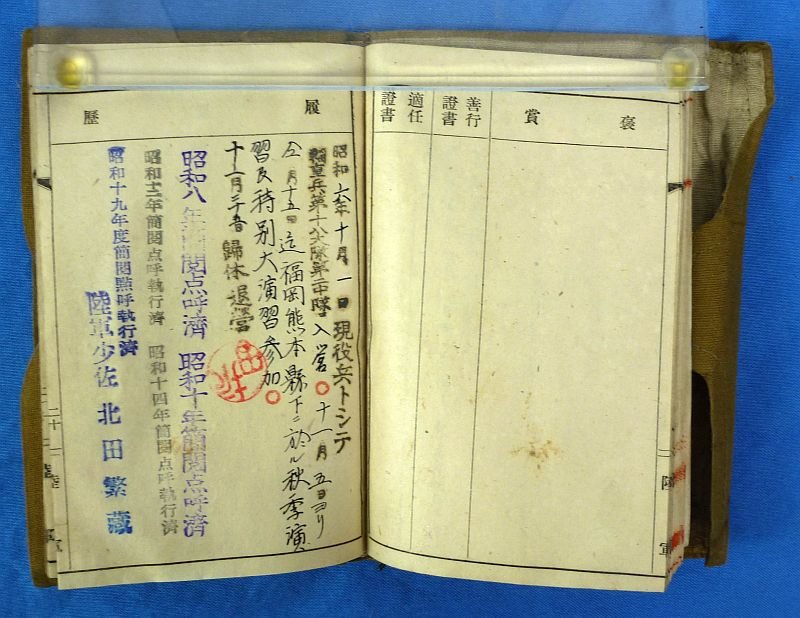 褒賞
善行證書
適任證書
履歷
昭和六年十月一日現役兵トシテ
輜重兵第十八大隊第二中隊入營○十一月五日ヨリ
仝月十五日迄福岡熊本縣下ニ於ル秋季演
習及特別大演習參加○
十一月三十日歸休退營
昭和八年簡閲点呼濟 昭和十年簡閲点呼濟
昭和十二年簡閲点呼執行濟 昭和十四年簡閲点呼執行濟
昭和十九年度簡閲點呼執行濟
陸軍少佐 北田繁藏
陸軍